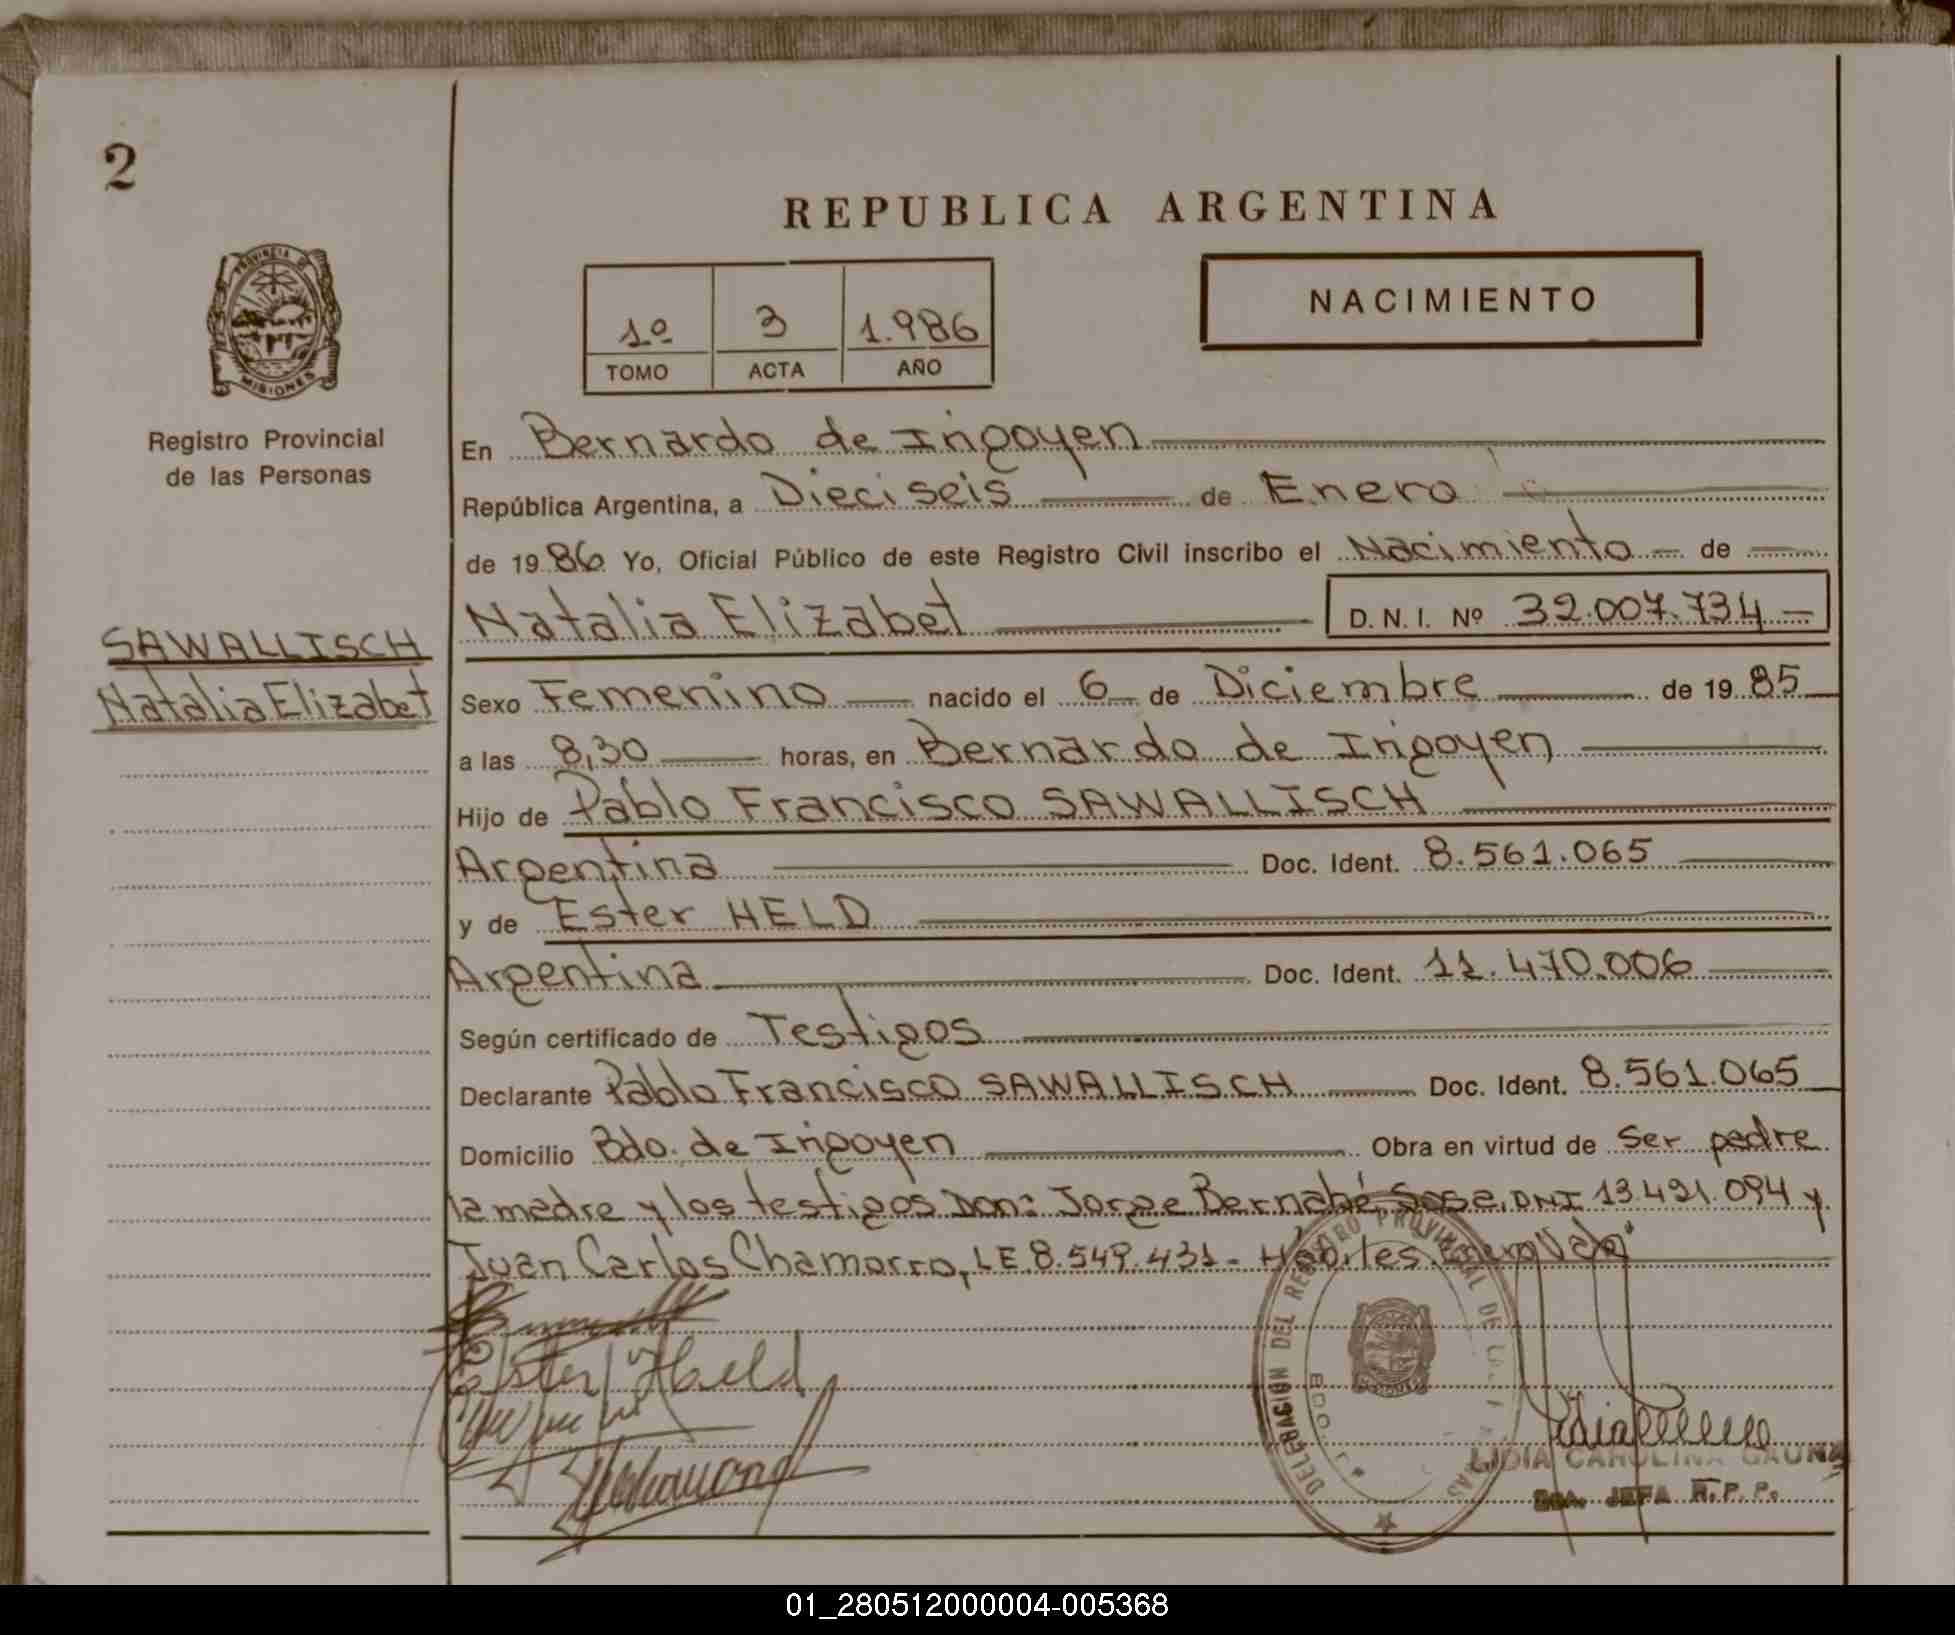 2
REPUBLICA ARGENTINA
PROVINCIA DE
MISIONES
Registro Provincial
de las Personas
1º 3 1.986
TOMO ACTA AÑO
NACIMIENTO
En Bernardo de Irigoyen
República Argentina, a Dieciseis de Enero
de 1986 Yo, Oficial Público de este Registro Civil inscribo el Nacimiento de
SAWALLISCH
Natalia Elizabet
Natalia Elizabet D. N. I. Nº 32.007.734
Sexo Femenino nacido el 6 de Diciembre de 1985
a las 8,30 horas, en Bernardo de Irigoyen
Hijo de Pablo Francisco SAWALLISCH
Argentina Doc. Ident. 8.561.065
y de Ester HELD
Argentina Doc. Ident. 11.470.006
Según certificado de Testigos
Declarante Pablo Francisco SAWALLISCH Doc. Ident. 8.561.065
Domicilio Bdo. de Irigoyen Obra en virtud de Ser padre
la madre y los testigos Don: Jorge Bernabé Sosa, DNI 13.491.094 y
Juan Carlos Chamorro, LE 8.549.431 - Hábiles.
Ester Held
DELEGACION DEL REGISTRO PROVINCIAL DE LAS
BDO. I
LIDIA CAROLINA GAUNA
JEFA R.P.P.
01_280512000004-005368